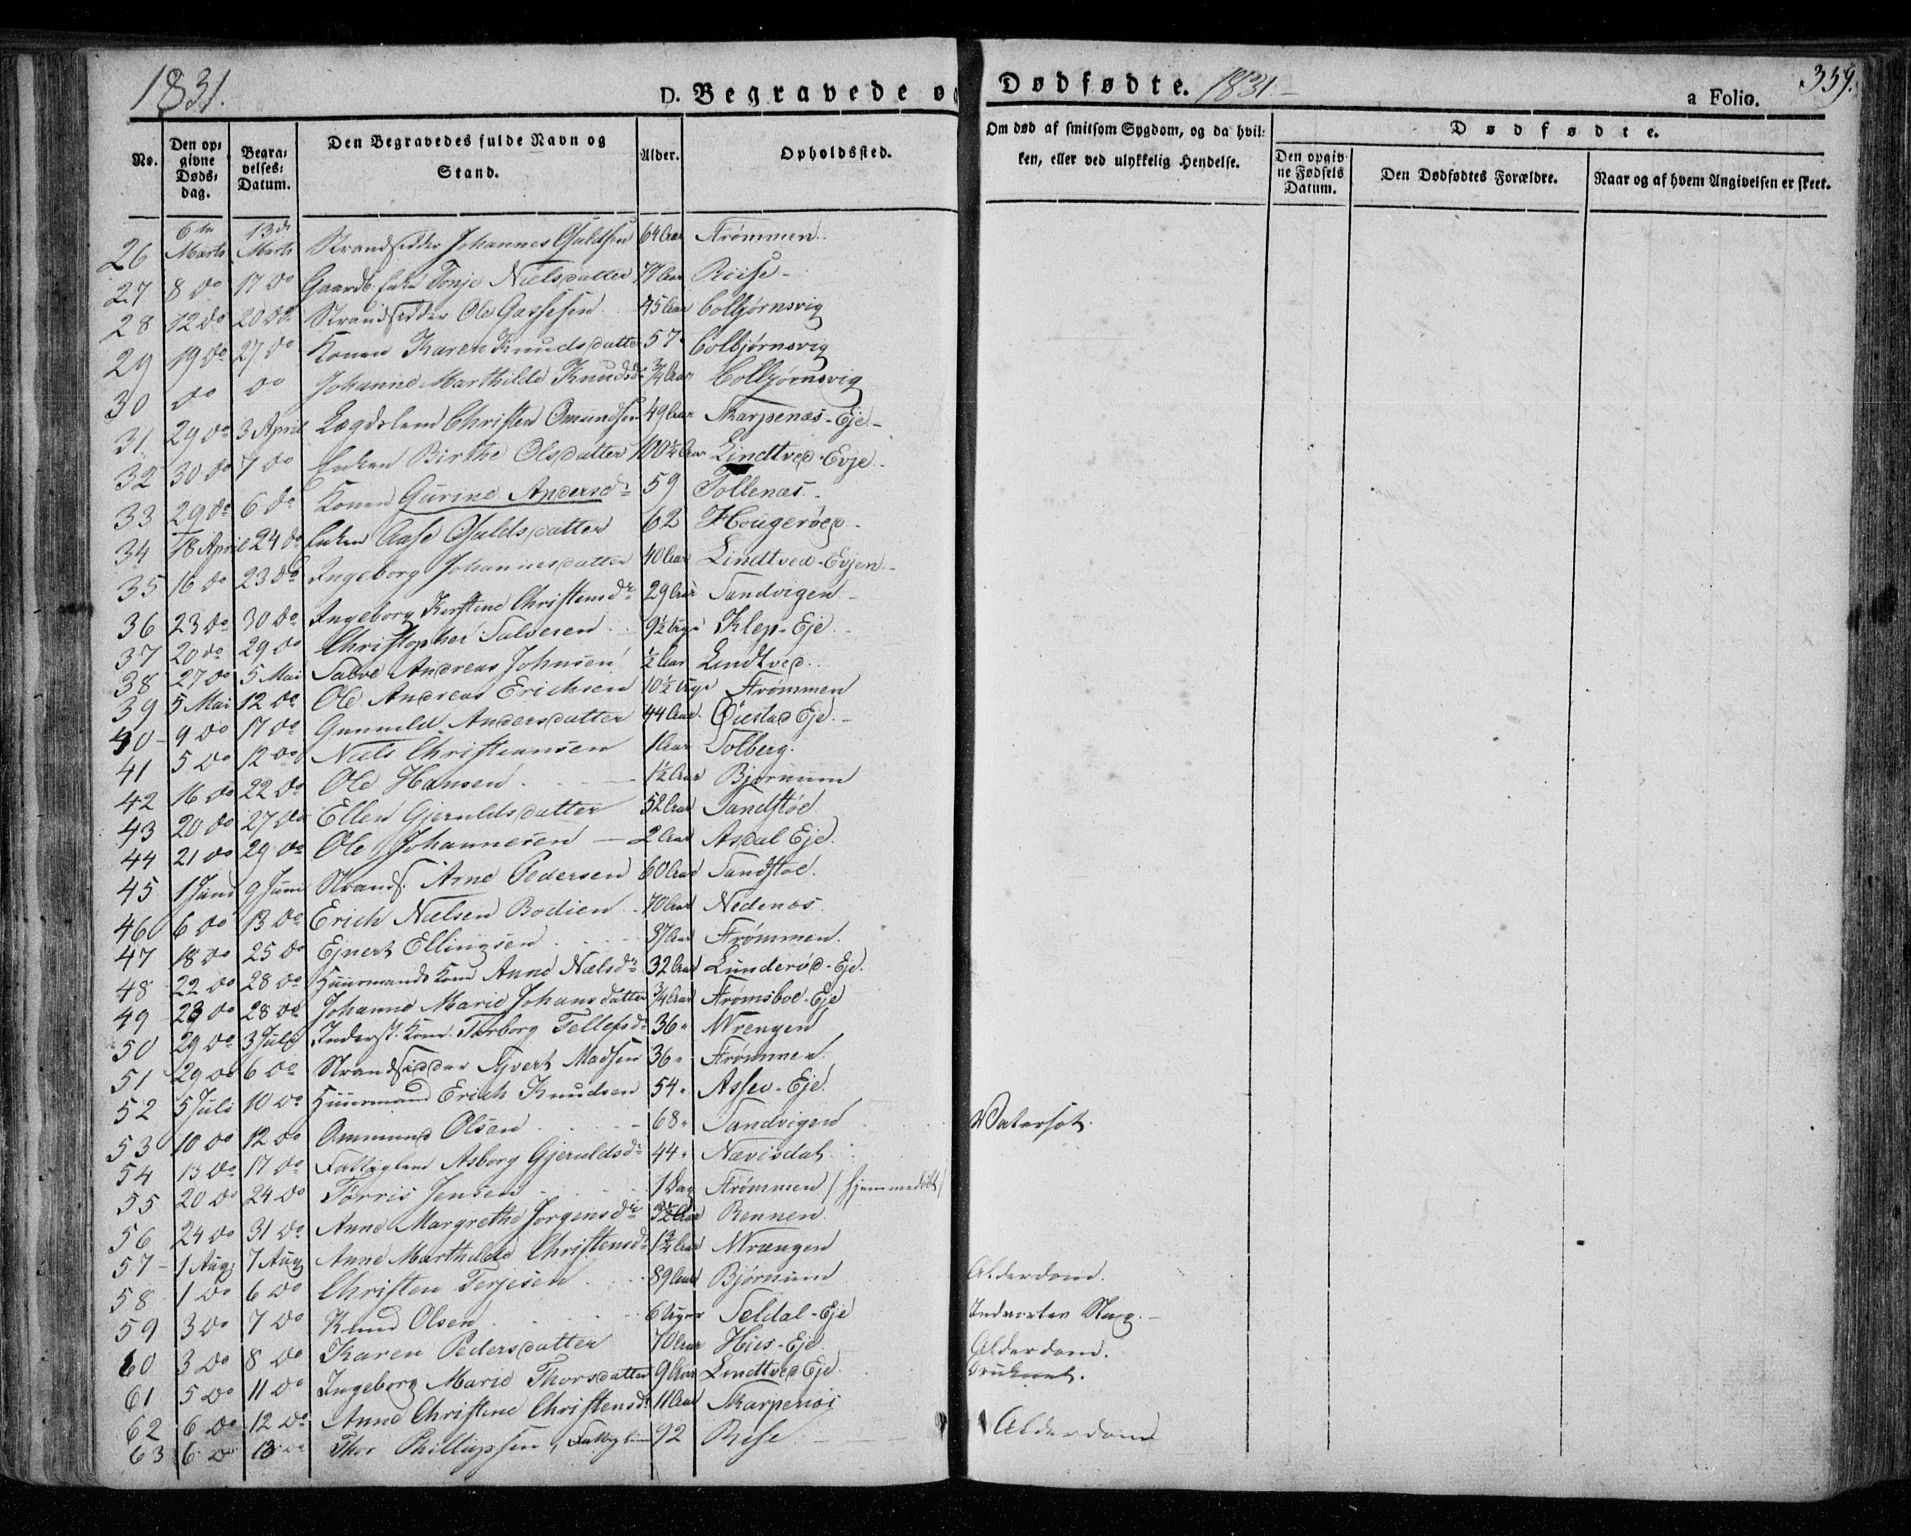 1831.
D. Begravede og Dødfødte. 1831
a Folio. 359.
No. Den opgivne Dødsdag. Begravelses-Datum. Den Begravedes fulde Navn og Stand. Alder. Opholdssted. Om død af smitsom Sygdom, og da hvilken, eller ved ulykkelig Hendelse. Dødfødte.
Den opgivne Fødsels Datum. Den Dødfødtes Forældre. Naar og af hvem Angivelsen er skeet.
26 6te Marts 13de Marts Strandsidder Johannes Guldsen 64 Aar Strømmen
27 8 do 17 do Gaardb. Enke Tonje Nielsdatter 77 Aar Riise
28 12 do 20 do Strandsidder Ole Gassesen 45 Aar Colbjørnsvig
29 19 do 27 do Konen Karen Knudsdatter 57 Colbjørnsvig
30 do do Johanne Marthilde Knudsdr 3/4 Aar Colbjørnsvig
31 29 do 3 April Lægdslem Christen Omundsen 49 Aar Skarpenæs-Eje
32 30 do 7 do Enken Birthe Olsdatter 100 1/2 Aar Lindtved-Evje
33 29 do 6 do Konen Gurine Andersdr 59 Tollenæs
34 18 April 24 do Enken Aase Guldsdatter 62 Hougerøed
35 16 do 23 do Ingeborg Johannesdatter 40 Aar Lindtved-Evjen
36 23 do 30 do Ingeborg Kirstine Christensdr 29 Aar Sandvigen
37 20 do 29 do Christopher Salvesen 9 1/2 Uge Klep-Eje
38 27 do 5 Mai Salve Andreas Johnsen 1/2 Aar Lindtved
39 5 Mai 12 do Ole Andreas Erichsen 10 1/2 Uge Strømmen
40 9 do 17 do Gunnild Andersdatter 44 Aar Øiestad Eje
41 5 do 12 do Niels Christiansen 1 Aar Solberg
42 16 do 22 do Ole Hansen 1 1/2 Aar Bjørnum
43 20 do 27 do Ellen Gjeruldsdatter 52 Aar Sandstøe
44 21 do 29 do Ole Johannesen 2 Aar Asdal Eje
45 1 Juni 9 Juni Strands. Arne Pedersen 60 Aar Sandstøe
46 6 do 13 do Erich Nielsen Bodien 70 Aar Nedenæs
47 18 do 25 do Ejvert Ellingsen 37 Aar Strømmen
48 22 do 28 do Huusmands Kone Anne Nielsdr 32 Aar Lunderød-Eje
49 23 do 28 do Johanne Marie Johansdatter 3/4 Aar Strømsboe-Eje
50 29 do 3 Juli Inderst. Kone Torborg Tellefsdr 36 Wrengen
51 29 do 6 do Strandsidder Syvert Madsen 36 Strømmen
52 5 Juli 10 do Huusmand Erich Knudsen 54 Assev-Eje
53 10 do 12 do Ommund Olsen 68 Sandvigen Watersot
54 13 do 17 do Fattiglem Asborg Gjeruldsdr 44 Nævisdal
55 20 do 24 do Torris Jensen 1 Dag Strømmen / hjemmedøbt /
56 24 do 31 do Anne Margrethe Jørgensdr Aar Rennen
57 1 Aug. 7 Aug Anne Marthilde Christensdr 1 3/4 Aar Wrængen
58 1 do 6 do Christen Terjesen 89 Aar Bjørnum Alderdom.
59 3 do 7 do Knud Olsen 6 Uger Seldal-Eje Indvortes
60 3 do 8 do Karen Pedersdatter 70 Aar Hus-Eje Alderdom.
61 5 do 11 do Ingeborg Marie Thorsdatter 9 Aar Lindtved Eje Druknet.
62 6 do 12 do Anne Christine Christensdr 11 Aar Skarpenæs
63 6 do 13 do Thor Phillipsen, Fattiglem 92 Riise Alderdom